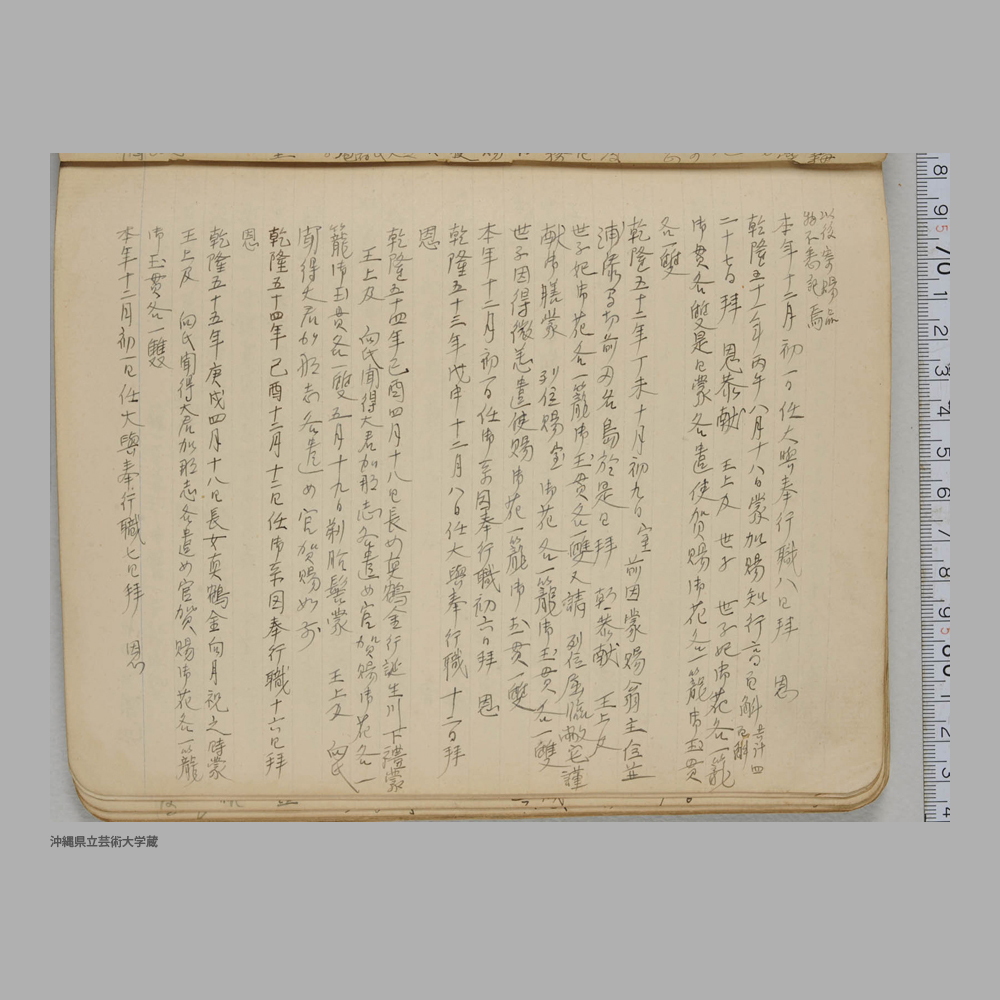 以後寄賜品
物不悉記焉
本年十二月初一日任大與奉行職八日拜 恩
乾隆五十一年丙午八月十八日蒙加賜知行高百斛共計四百斛
二十七日拜 恩恭献 王上及 世子 世子妃御花各一籠
御玉貫各一雙是日蒙各遣使賀賜御花各一籠御玉貫
各一雙
乾隆五十二年丁未十月初九日 室前因蒙賜翁主位並
浦添 於是日拜 恭献 王上及
世子妃御花各一籠御玉貫各一雙又請 列位屈臨敝宅謹
献御膳蒙 列位賜室御花各一籠御玉貫各一雙
世子因得微恙遣使賜御花一籠御玉貫一雙
本年十二月初一日任御系図奉行職初六日拜 恩
乾隆五十三年戊申十二月八日任大與奉行職十二日拜
恩
乾隆五十四年己酉四月十八日長女真鶴金行誕生川下禮蒙
王上及 向氏聞得大君加那志各遣女官賀賜御花各一
籠御玉貫各一雙五月十九日剃胎髪蒙 王上及 向氏
聞得大君加那志各遣女官賀賜如前
乾隆五十四年己酉十二月十二日任御系図奉行職十六日拜
恩
乾隆五十五年庚戌四月十八日長女真鶴金向月祝之時蒙
王上及 向氏聞得大君加那志各遣女官賀賜御花各一籠
御玉貫各一雙
本年十二月初一日任大與奉行職七日拜 恩
沖縄県立芸術大学蔵